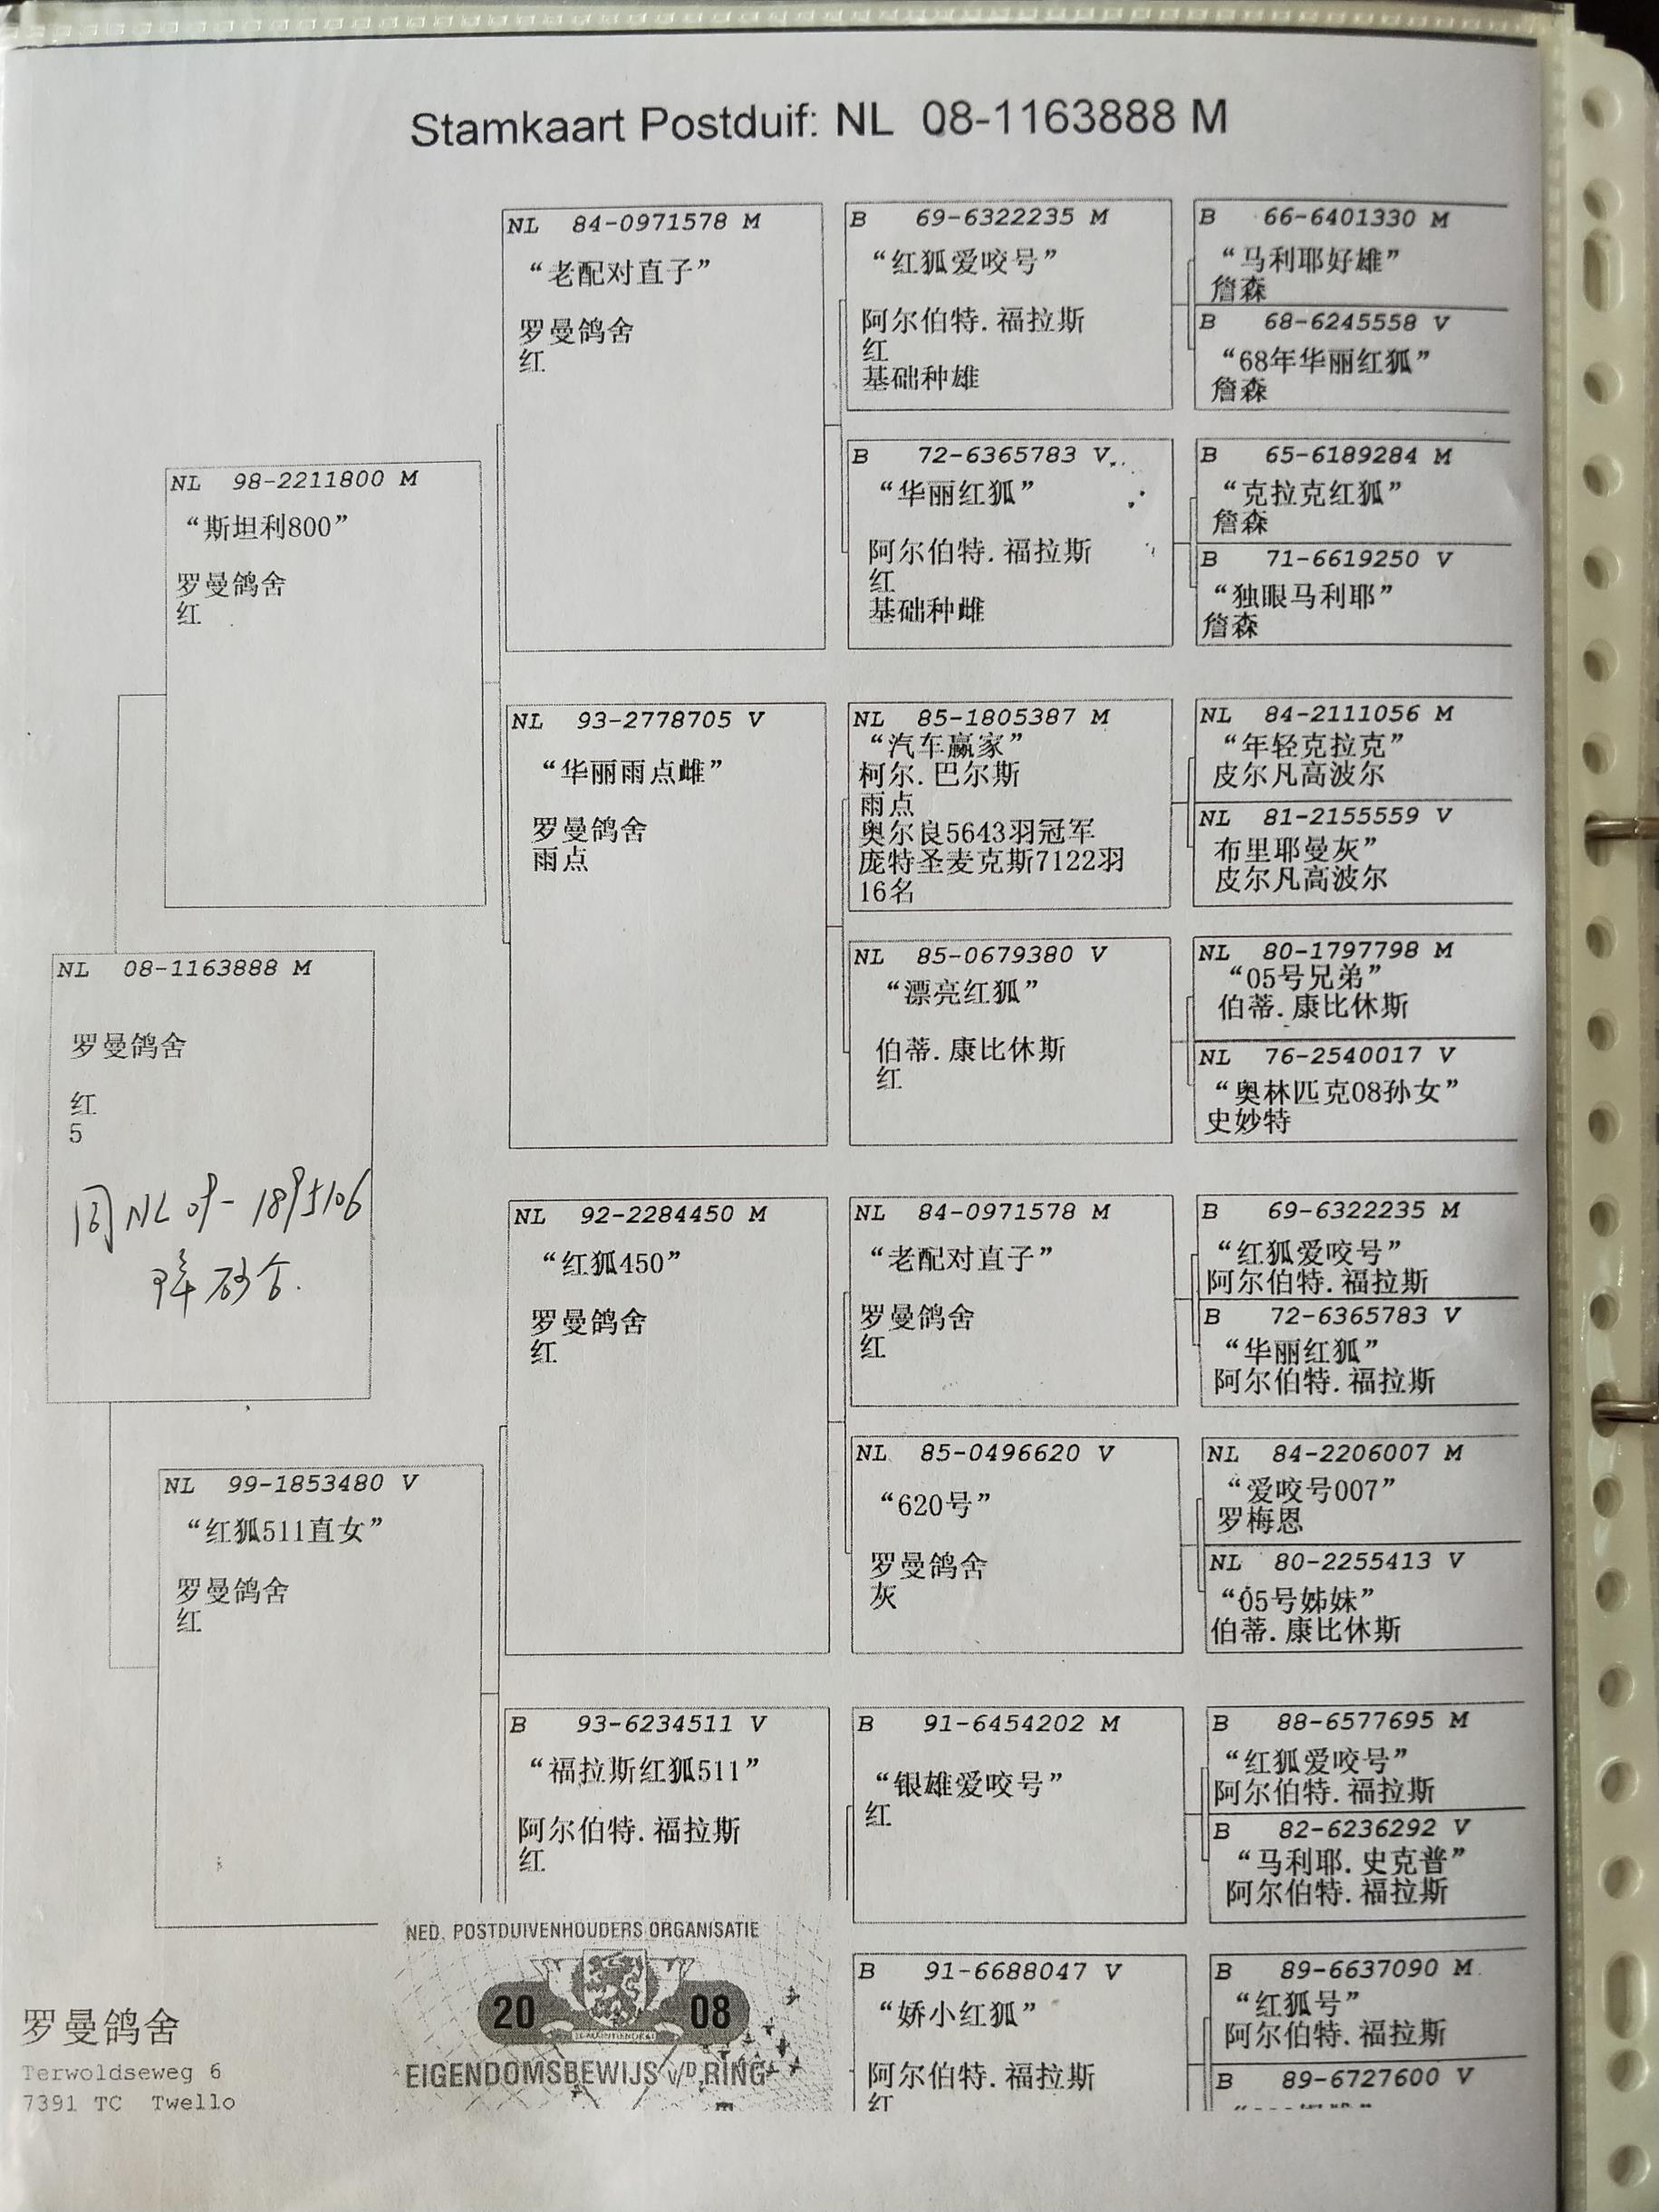 Stamkaart Postduif: NL 08-1163888 M
NL 08-1163888 M
罗曼鸽舍
红
5
同NL 09-1895106
NL 98-2211800 M
“斯坦利800”
罗曼鸽舍
红
NL 99-1853480 V
“红狐511直女”
罗曼鸽舍
红
NL 84-0971578 M
“老配对直子”
罗曼鸽舍
红
NL 93-2778705 V
“华丽雨点雌”
罗曼鸽舍
雨点
NL 92-2284450 M
“红狐450”
罗曼鸽舍
红
B 93-6234511 V
“福拉斯红狐511”
阿尔伯特.福拉斯
红
B 69-6322235 M
“红狐爱咬号”
阿尔伯特.福拉斯
红
基础种雄
B 72-6365783 V
“华丽红狐”
阿尔伯特.福拉斯
红
基础种雌
NL 85-1805387 M
“汽车赢家”
柯尔.巴尔斯
雨点
奥尔良5643羽冠军
庞特圣麦克斯7122羽
16名
NL 85-0679380 V
“漂亮红狐”
伯蒂.康比休斯
红
NL 84-0971578 M
“老配对直子”
罗曼鸽舍
红
NL 85-0496620 V
“620号”
罗曼鸽舍
灰
B 91-6454202 M
“银雄爱咬号”
红
B 91-6688047 V
“娇小红狐”
阿尔伯特.福拉斯
红
B 66-6401330 M
“马利耶好雄”
詹森
B 68-6245558 V
“68年华丽红狐”
詹森
B 65-6189284 M
“克拉克红狐”
詹森
B 71-6619250 V
“独眼马利耶”
詹森
NL 84-2111056 M
“年轻克拉克”
皮尔凡高波尔
NL 81-2155559 V
布里耶曼灰”
皮尔凡高波尔
NL 80-1797798 M
“05号兄弟”
伯蒂.康比休斯
NL 76-2540017 V
“奥林匹克08孙女”
史妙特
B 69-6322235 M
“红狐爱咬号”
阿尔伯特.福拉斯
B 72-6365783 V
“华丽红狐”
阿尔伯特.福拉斯
NL 84-2206007 M
“爱咬号007”
罗梅恩
NL 80-2255413 V
“05号姊妹”
伯蒂.康比休斯
B 88-6577695 M
“红狐爱咬号”
阿尔伯特.福拉斯
B 82-6236292 V
“马利耶.史克普”
阿尔伯特.福拉斯
B 89-6637090 M
“红狐号”
阿尔伯特.福拉斯
B 89-6727600 V
罗曼鸽舍
Terwoldseweg 6
7391 TC Twello
NED. POSTDUIVENHOUDERS ORGANISATIE
20 08
EIGENDOMSBEWIJS v/D RING